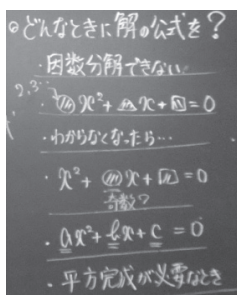 ◎どんなときに解の公式を?
・因数分解できない
2,3…
○x²+△x+□=0
・わからなくなったら…
・x²+○x+□=0
奇数?
・ax²+bx+c=0
・平方完成が必要なとき